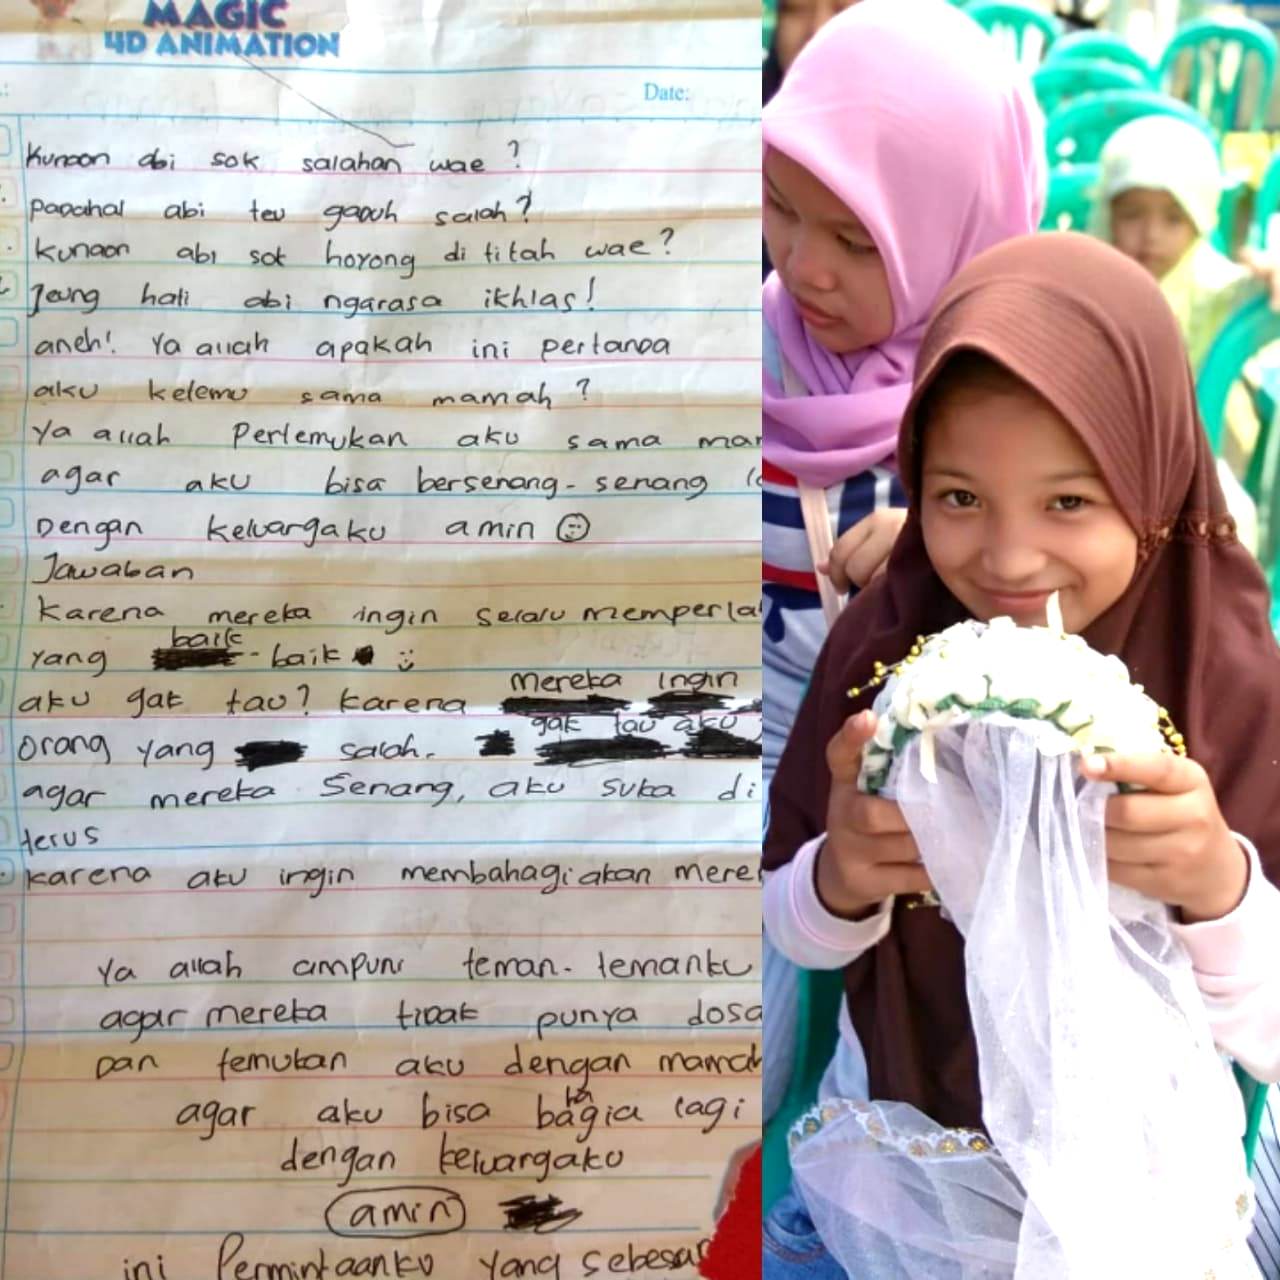 MAGIC
4D ANIMATION
Date:
Kunaon abi sok salahan wae ?
Padahal abi teu gaduh salah ?
Kunaon abi sok hoyong di titah wae ?
Jeung hati abi ngarasa ikhlas !
aneh! Ya allah apakah ini pertanda
aku ketemu sama mamah ?
Ya allah Pertemukan aku sama
agar aku bisa bersenang - senang
Dengan keluargaku amin
Jawaban
Karena mereka ingin selalu
yang baik - baik
aku gak tau ? karena mereka ingin
gak tau aku
orang yang salah.
agar mereka Senang, aku suka di
terus
Karena aku ingin membahagiakan
Ya allah ampuni teman - temanku
agar mereka tidak punya
Dan temukan aku dengan
agar aku bisa bahagia lagi
dengan keluargaku
amin
ini Permintaanku yang